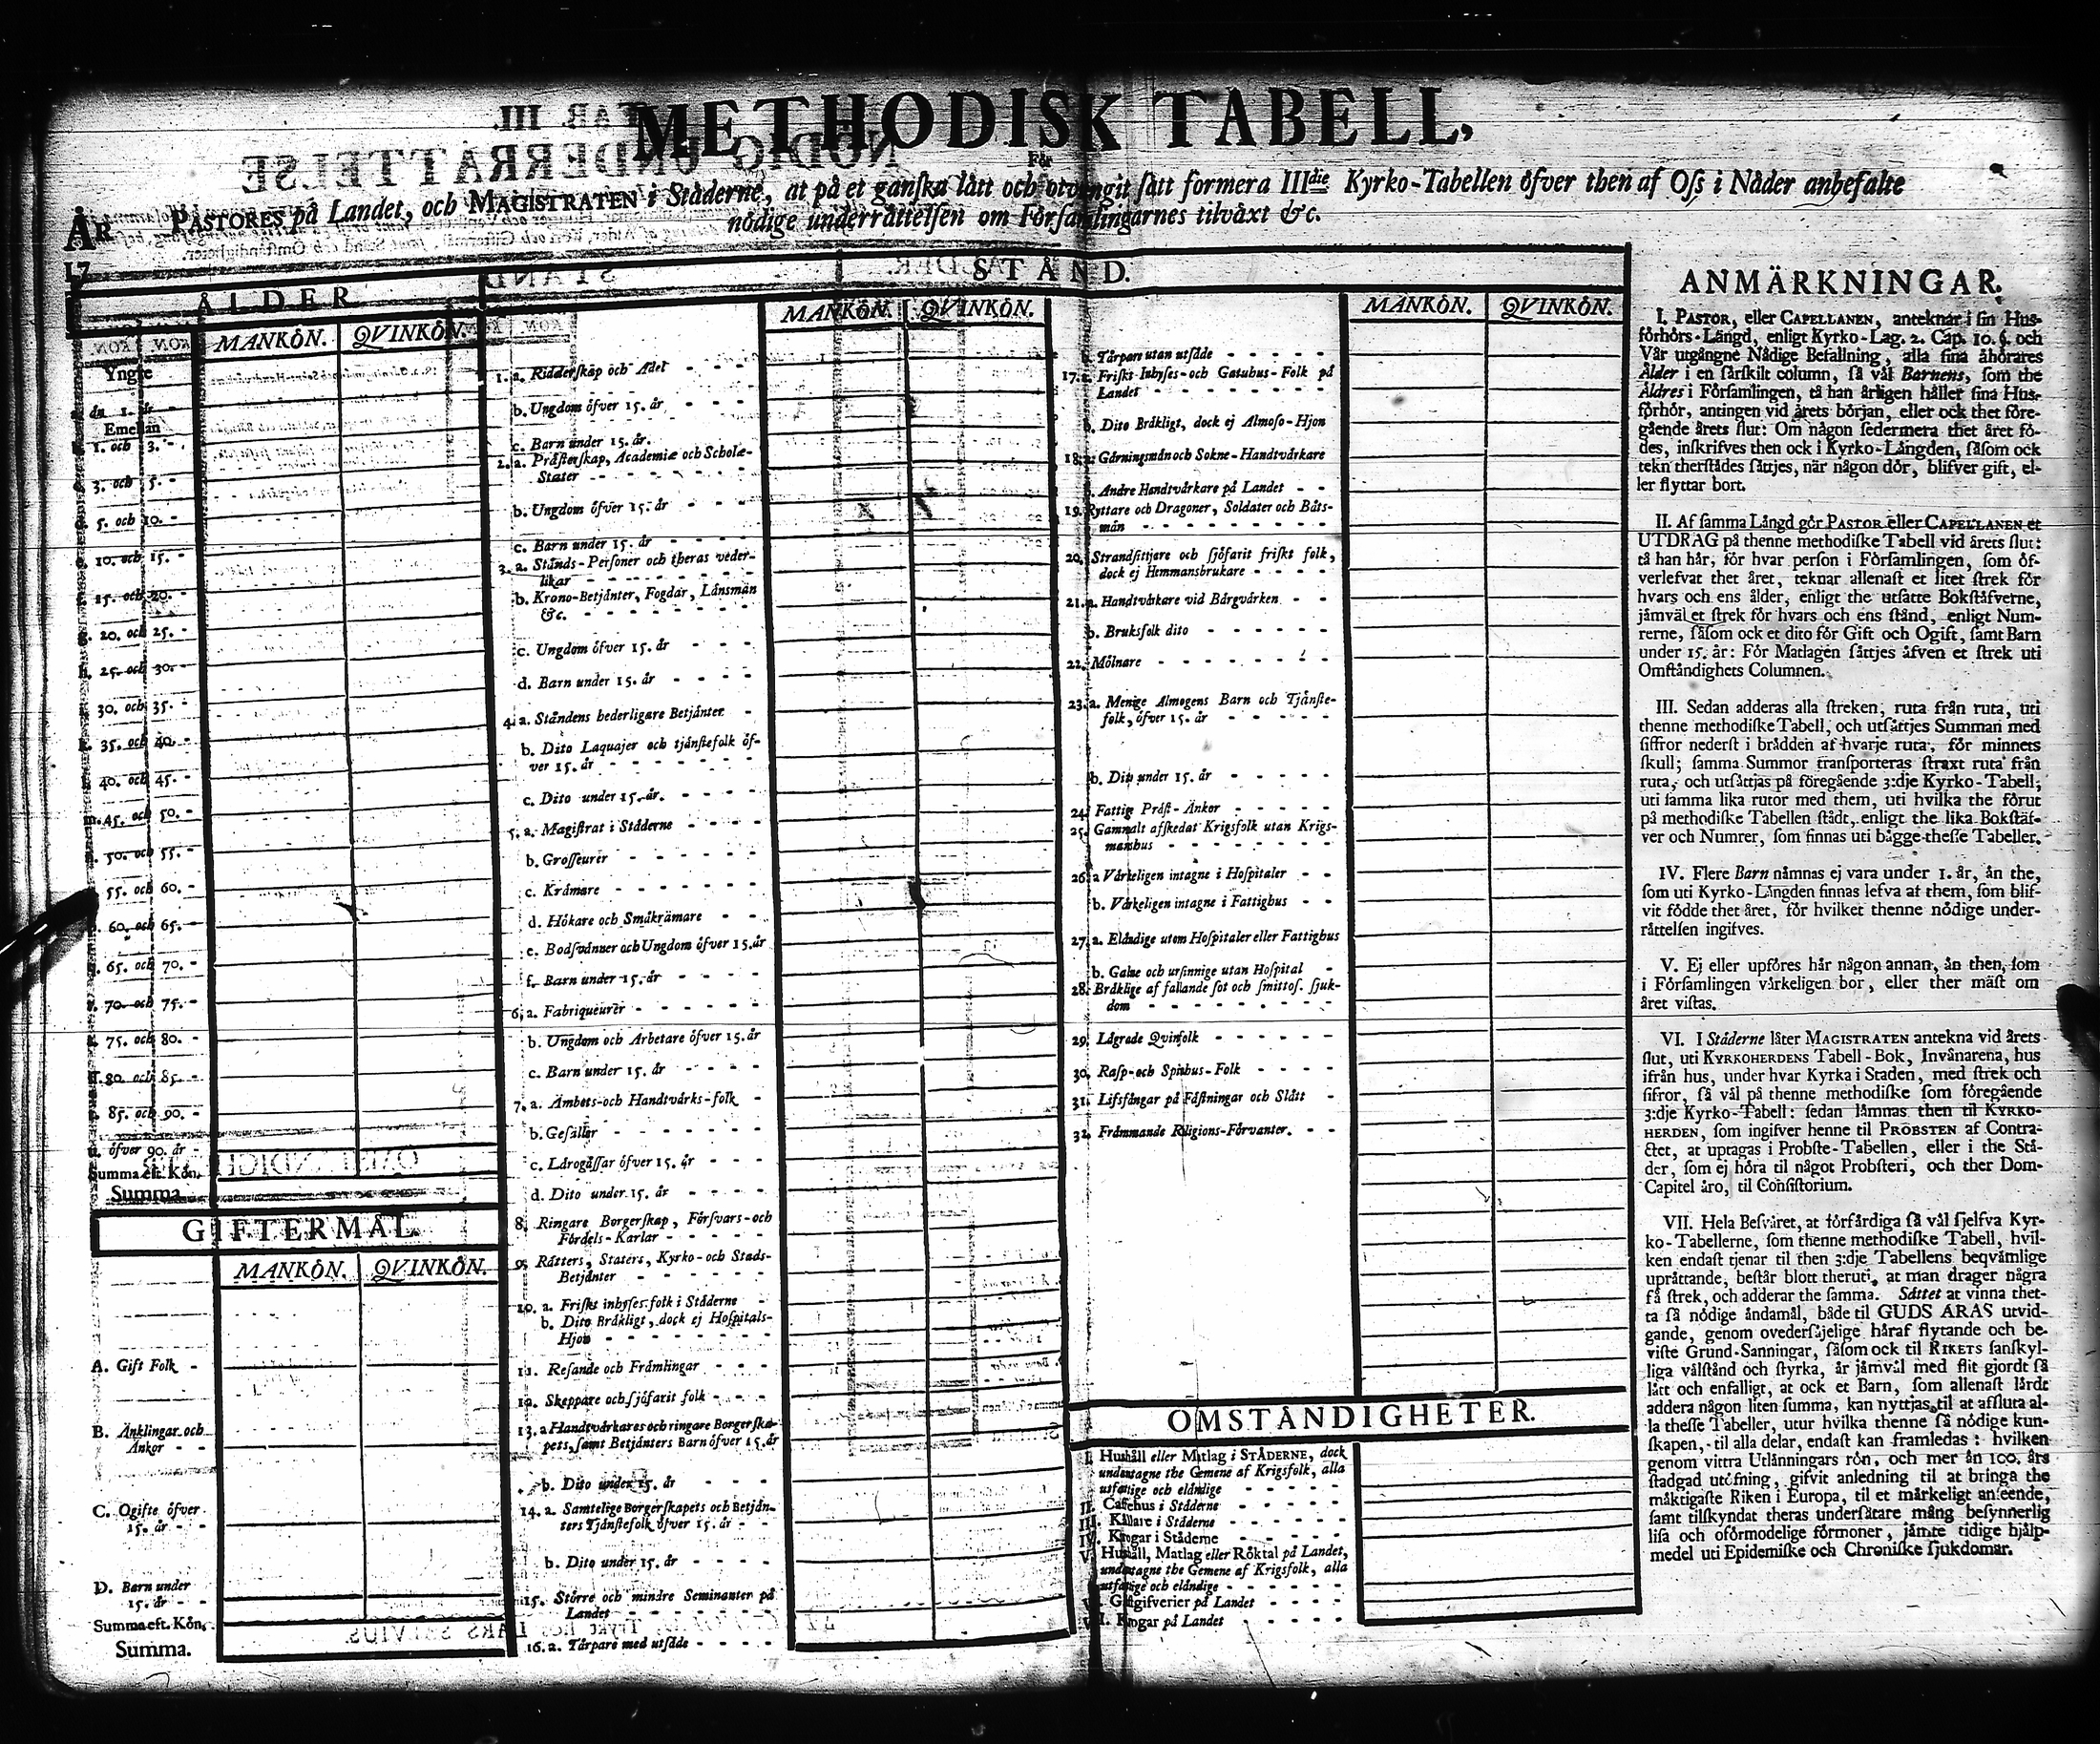 METHODISK TABELL,
För
PASTORES på Landet, och MAGISTRATEN i Städerne, at på et ganska lätt och otvungit sätt formera IIIdie Kyrko-Tabellen öfver then af Oss i Nåder anbefalte
nödige underrättelsen om Församlingarnes tilväxt &c.
ÅR
17
ÅLDER
MANKÖN. QVINKÖN.
Yngre
än 1. år
Emellan
1. och 3.
3. och 5.
5. och 10.
10. och 15.
15. och 20.
g. 20. och 25.
h. 25. och 30.
30. och 35.
k. 35. och 40.
40. och 45.
m. 45. och 50.
50. och 55.
55. och 60.
60. och 65.
65. och 70.
70. och 75.
75. och 80.
80. och 85.
85. och 90.
u. öfver 90. år
Summa eft. Kön.
Summa
GIFTERMÅL.
MANKÖN. QVINKÖN.
A. Gift Folk
B. Änklingar och
Änkor
C. Ogifte öfver
15. år
D. Barn under
15. år
Summa eft. Kön.
Summa.
STÅND.
MANKÖN. QVINKÖN.
1. a. Ridderskap och Adel
b. Ungdom öfver 15. år
c. Barn under 15. år.
2. a. Prästerskap, Academiæ och Scholæ-
Stater
b. Ungdom öfver 15. år
c. Barn under 15. år
3. a. Stånds-Personer och theras veder-
likar
b. Krono-Betjänter, Fogdar, Länsmän
&c.
c. Ungdom öfver 15. år
d. Barn under 15. år
4. a. Ståndens hederligare Betjänter
b. Dito Laquajer och tjänstefolk öf-
ver 15. år
c. Dito under 15. år.
5. a. Magistrat i Städerne
b. Grosseurer
c. Krämare
d. Hökare och Småkrämare
e. Bodsvänner och Ungdom öfver 15. år
f. Barn under 15. år
6. a. Fabriqueurer
b. Ungdom och Arbetare öfver 15. år
c. Barn under 15. år
7. a. Ämbets-och Handtvärks-folk
b. Gesäller
c. Lärogåssar öfver 15. år
d. Dito under 15. år
8. Ringare Borgerskap, Försvars-och
Fördels-Karlar
9. Rätters, Staters, Kyrko-och Stads-
Betjänter
10. a. Friskt inhyses folk i Städerne
b. Dito Bräkligt, dock ej Hospitals-
Hjon
11. Resande och Främlingar
12. Skeppare och sjöfarit folk
13. a Handtvärkares och ringare Borgerska-
pets, samt Betjänters Barn öfver 15. år
b. Dito under 15. år
14. a. Samtelige Borgerskapets och Betjän-
ters Tjänstefolk öfver 15. år
b. Dito under 15. år
15. Större och mindre Seminanter på
Landet
16. a. Tårpare med utsäde
MANKÖN. QVINKÖN.
b. Tårpare utan utsäde
17. a. Friskt Inhyses-och Gatuhus-Folk på
Landet
b. Dito Bräkligt, dock ej Almoso-Hjon
18. a. Gärningsmän och Sokne-Handtvärkare
b. Andre Handtvärkare på Landet
19. Ryttare och Dragoner, Soldater och Båts-
män
20. Strandsittjare och sjöfarit friskt folk,
dock ej Hemmansbrukare
21. a. Handtvärkare vid Bärgvärken
b. Bruksfolk dito
22. Mölnare
23. a. Menige Almogens Barn och Tjänste-
folk, öfver 15. år
b. Dito under 15. år
24. Fattige Präst-Änkor
25. Gammalt afskedat Krigsfolk utan Krigs-
manshus
26. a Värkeligen intagne i Hospitaler
b. Värkeligen intagne i Fattighus
27. a. Eländige utom Hospitaler eller Fattighus
b. Galne och ursinnige utan Hospital
28. Bräklige af fallande sot och smittos. sjuk-
dom
29. Lägrade Qvinfolk
30. Rasp-och Spinhus-Folk
31. Lifsfångar på Fästningar och Slått
32. Främmande Religions-Förvanter.
OMSTÄNDIGHETER.
I. Hushåll eller Matlag i STÄDERNE, dock
undantagne the Gemene af Krigsfolk, alla
utfattige och eländige
II. Caffehus i Städerne
III. Källare i Städerne
IV. Krogar i Städerne
V. Hushåll, Matlag eller Röktal på Landet,
undantagne the Gemene af Krigsfolk, alla
utfattige och eländige
Gästgifverier på Landet
Krogar på Landet
ANMÄRKNINGAR.
I. PASTOR, eller CAPELLANEN, anteknar i sin Hus-
förhörs-Längd, enligt Kyrko-Lag. 2. Cap. 10. §. och
Vår utgångne Nådige Befallning, alla sina åhörares
Ålder i en särskilt column, så väl Barnens, som the
Äldres i Församlingen, tå han årligen håller sina Hus-
förhör, antingen vid årets början, eller ock thet före-
gående årets slut: Om någon sedermera thet året fö-
des, inskrifves then ock i Kyrko-Längden, såsom ock
tekn therstädes sättjes, när någon dör, blifver gift, el-
ler flyttar bort.
II. Af samma Längd gör PASTOR eller CAPELLANEN et
UTDRAG på thenne methodiske Tabell vid årets slut:
tå han här, för hvar person i Församlingen, som öf-
verlefvat thet året, teknar allenast et litet strek för
hvars och ens ålder, enligt the utsatte Bokstäfverne,
jämväl et strek för hvars och ens stånd, enligt Num-
rerne, såsom ock et dito för Gift och Ogift, samt Barn
under 15. år: För Matlagen sättjes äfven et strek uti
Omständighets Columnen.
III. Sedan adderas alla streken, ruta från ruta, uti
thenne methodiske Tabell, och utsättjes Summan med
siffror nederst i brädden af hvarje ruta, för minnets
skull; samma Summor transporteras straxt ruta från
ruta, och utsättjas på föregående 3:dje Kyrko-Tabell;
uti samma lika rutor med them, uti hvilka the förut
på methodiske Tabellen städt, enligt the lika Bokstäf-
ver och Numrer, som finnas uti bägge thesse Tabeller.
IV. Flere Barn nämnas ej vara under 1. år, än the,
som uti Kyrko-Längden finnas lefva af them, som blif-
vit födde thet året, för hvilket thenne nödige under-
rättelsen ingifves.
V. Ej eller upföres här någon annan, än then, som
i Församlingen värkeligen bor, eller ther mäst om
året vistas.
VI. I Städerne låter MAGISTRATEN antekna vid årets
slut, uti KYRKOHERDENS Tabell-Bok, Invånarena, hus
ifrån hus, under hvar Kyrka i Staden, med strek och
sifror, så väl på thenne methodiske som föregående
3:dje Kyrko-Tabell: sedan lämnas then til KYRKO-
HERDEN, som ingifver henne til PROBSTEN af Contra-
ctet, at uptagas i Probste-Tabellen, eller i the Stä-
der, som ej höra til något Probsteri, och ther Dom-
Capitel äro, til Consistorium.
VII. Hela Besväret, at förfärdiga så väl sjelfva Kyr-
ko-Tabellerne, som thenne methodiske Tabell, hvil-
ken endast tjenar til then 3:dje Tabellens beqvämlige
uprättande, består blott theruti, at man drager några
få strek, och adderar the samma. Sättet at vinna thet-
ta så nödige ändamål, både til GUDS ÄRAS utvid-
gande, genom ovedersäjelige häraf flytande och be-
viste Grund-Sanningar, såsom ock til RIKETS sanskyl-
liga välstånd och styrka, är jämväl med flit gjordt så
lätt och enfälligt, at ock et Barn, som allenast lärdt
addera någon liten summa, kan nyttjas til at afsluta al-
la thesse Tabeller, utur hvilka thenne så nödige kun-
skapen, til alla delar, endast kan framledas: hvilken
genom vittra Utlänningars rön, och mer än 100. års
stadgad utöfning, gifvit anledning til at bringa the
mäktigaste Riken i Europa, til et märkeligt anseende,
samt tilskyndat theras undersåtare mång besynnerlig
lisa och oförmodelige förmoner, jämte tidige hjälp-
medel uti Epidemiske och Chroniske sjukdomar.